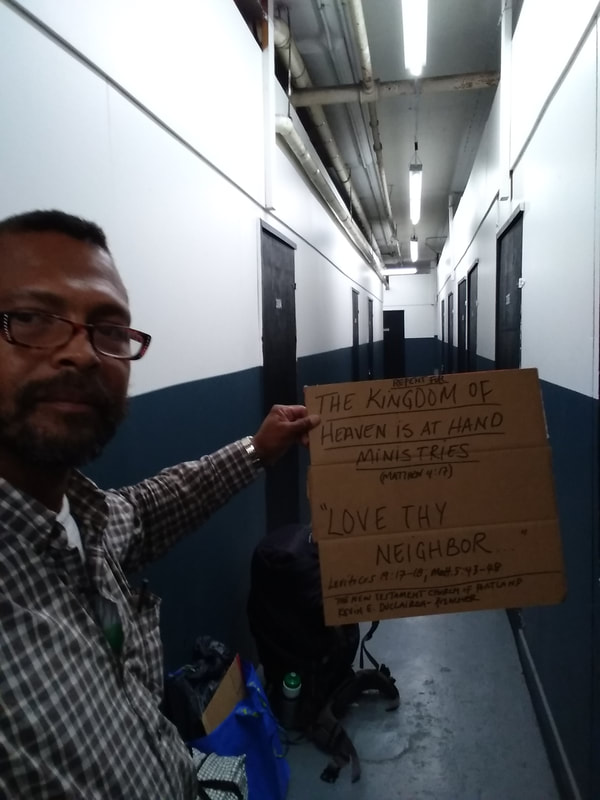 REPENT FOR
THE KINGDOM OF
HEAVEN IS AT HAND
MINISTRIES
(MATTHEW 4:17)
"LOVE THY
NEIGHBOR..."
Leviticus 19:17-18, Matt. 5:43-48
THE NEW TESTAMENT CHURCH OF PORTLAND
KEVIN E.